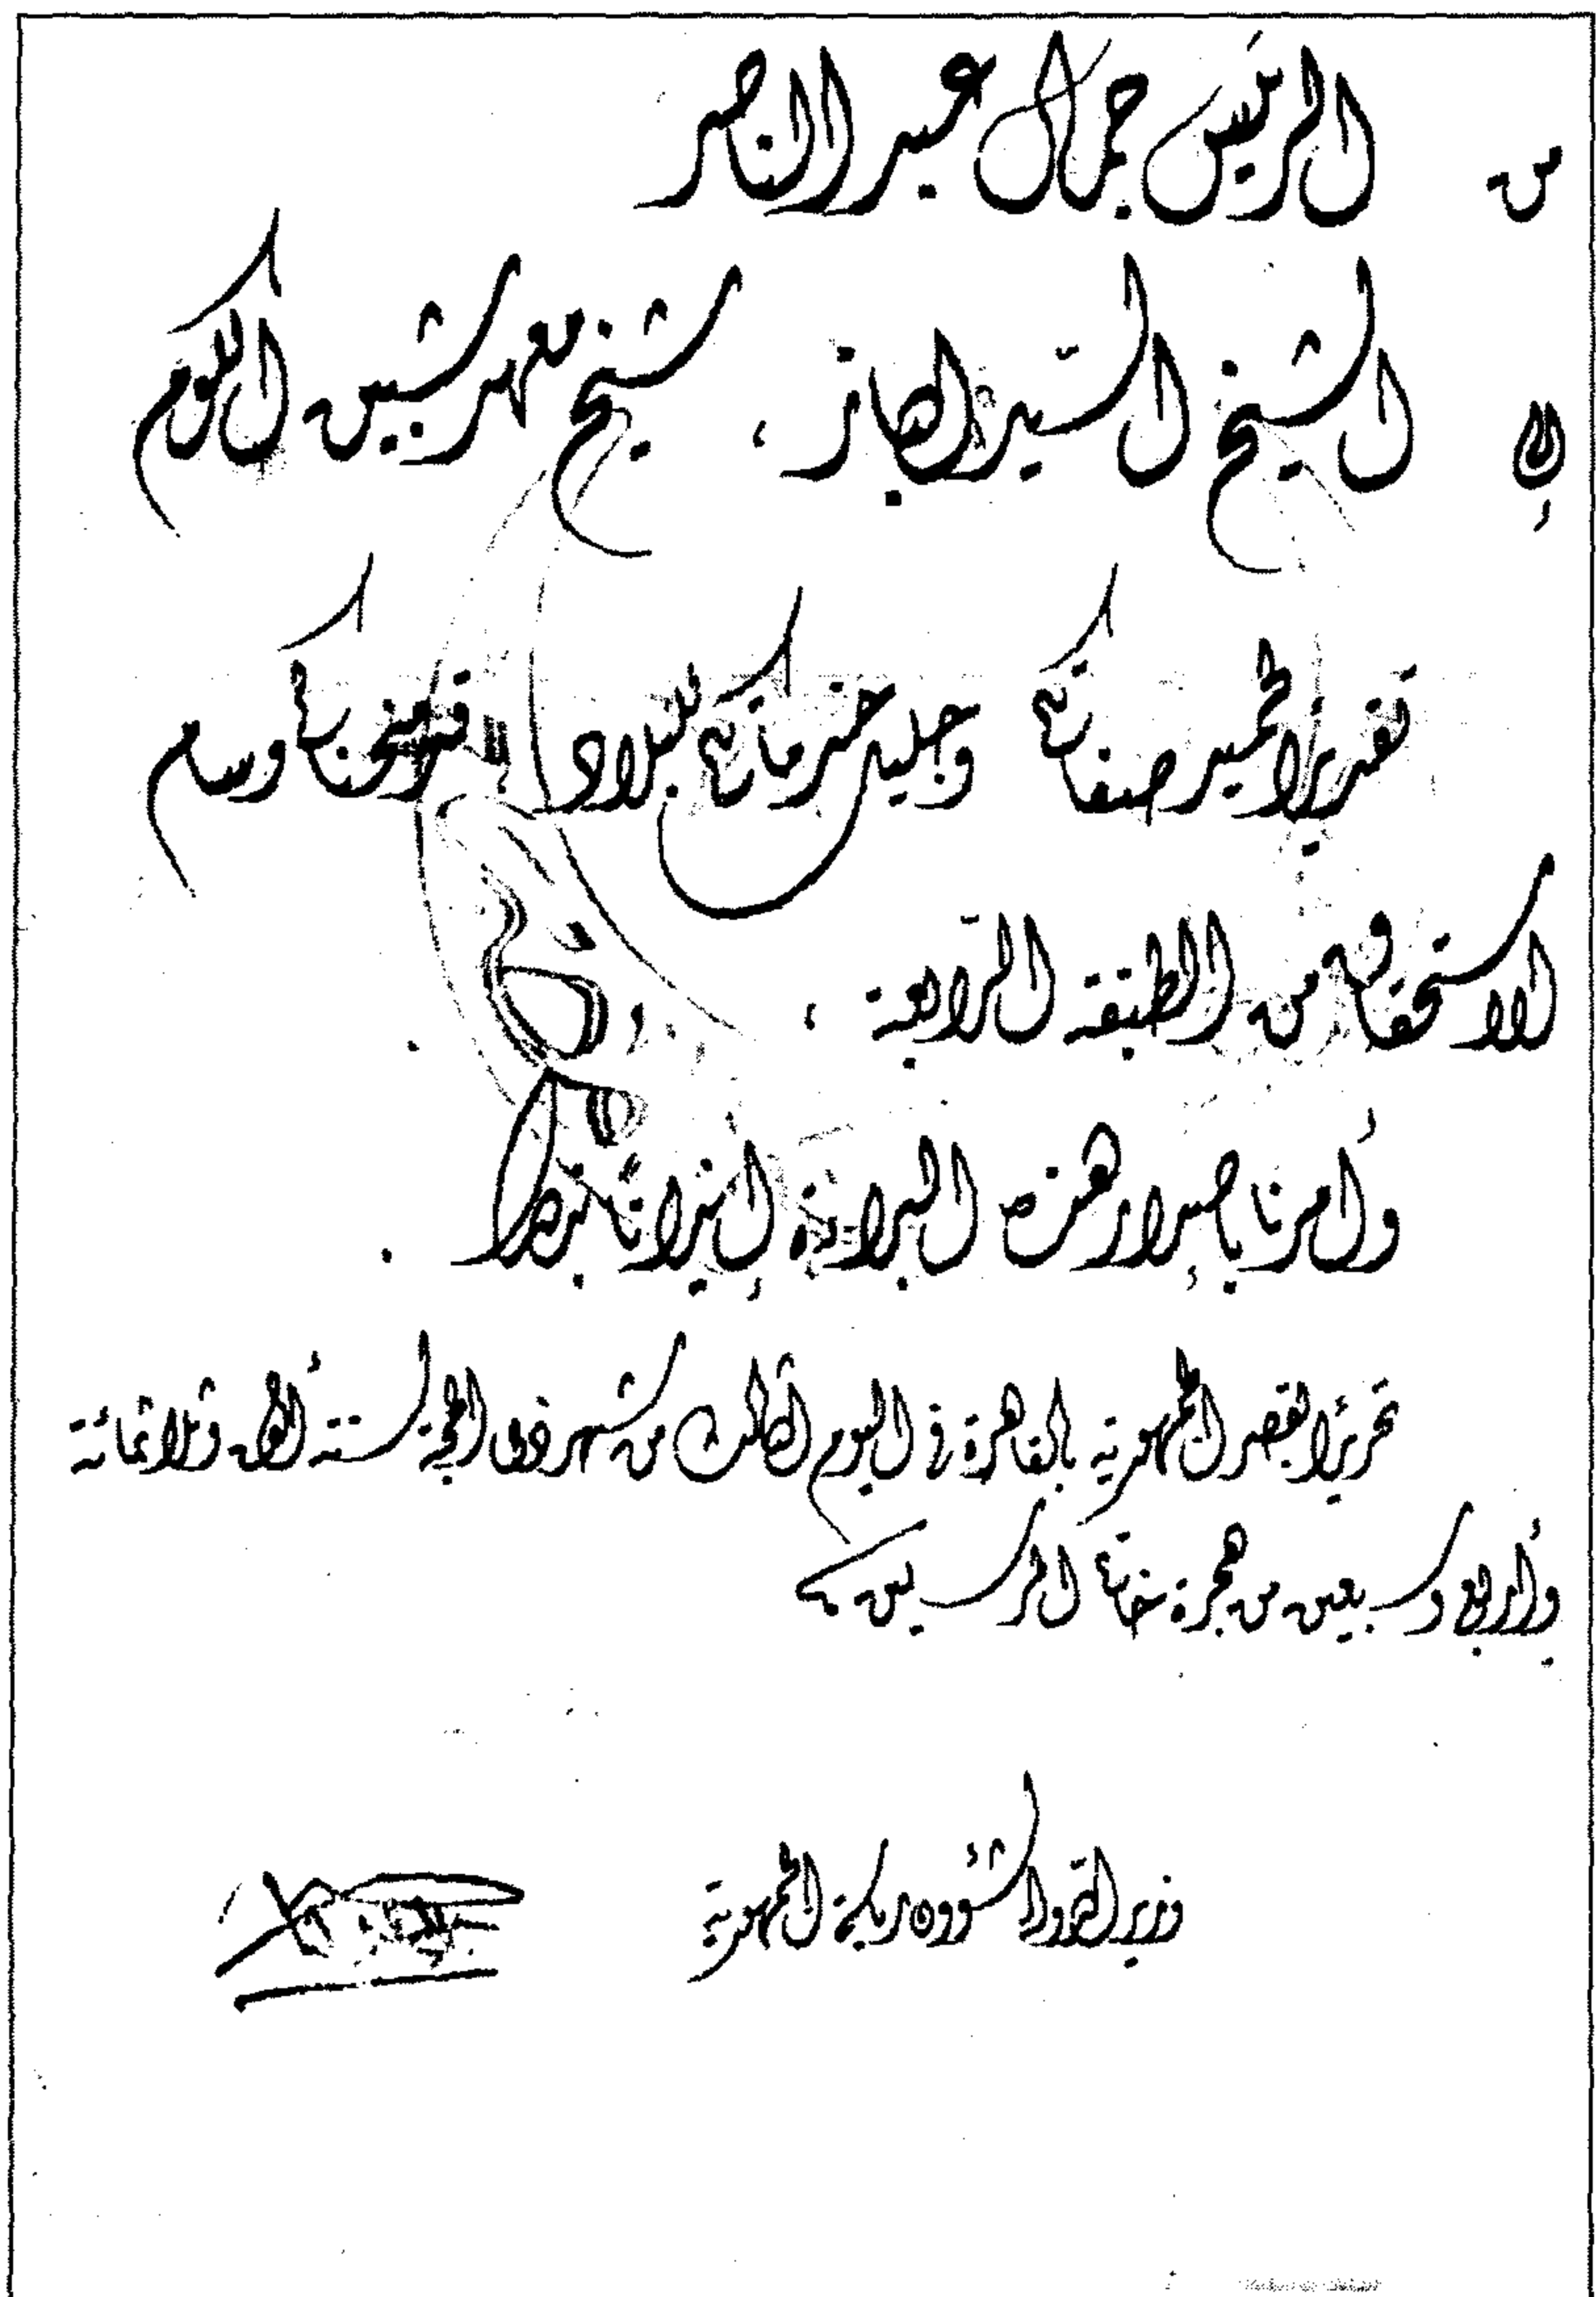 من الرئيس جمال عبد الناصر
إلى الشيخ السيد الباز ، شيخ معهد شبين الكوم
تقديرًا لحميد صفاتكم وجليل خدماتكم للبلاد قد منحناكم وسام
الاستحقاق من الطبقة الرّابعة ،
وأمرنا بإصدار هذه البراءة إيذانًا بذلك .
تحريرًا بقصر الجمهورية بالقاهرة فى اليوم الثالث من شهر ذى الحجة لسنة ألف وثلاثمائة
وأربع وسبعين من هجرة خاتم المرسلين
وزير الدّولة لشؤون رياسة الجمهورية